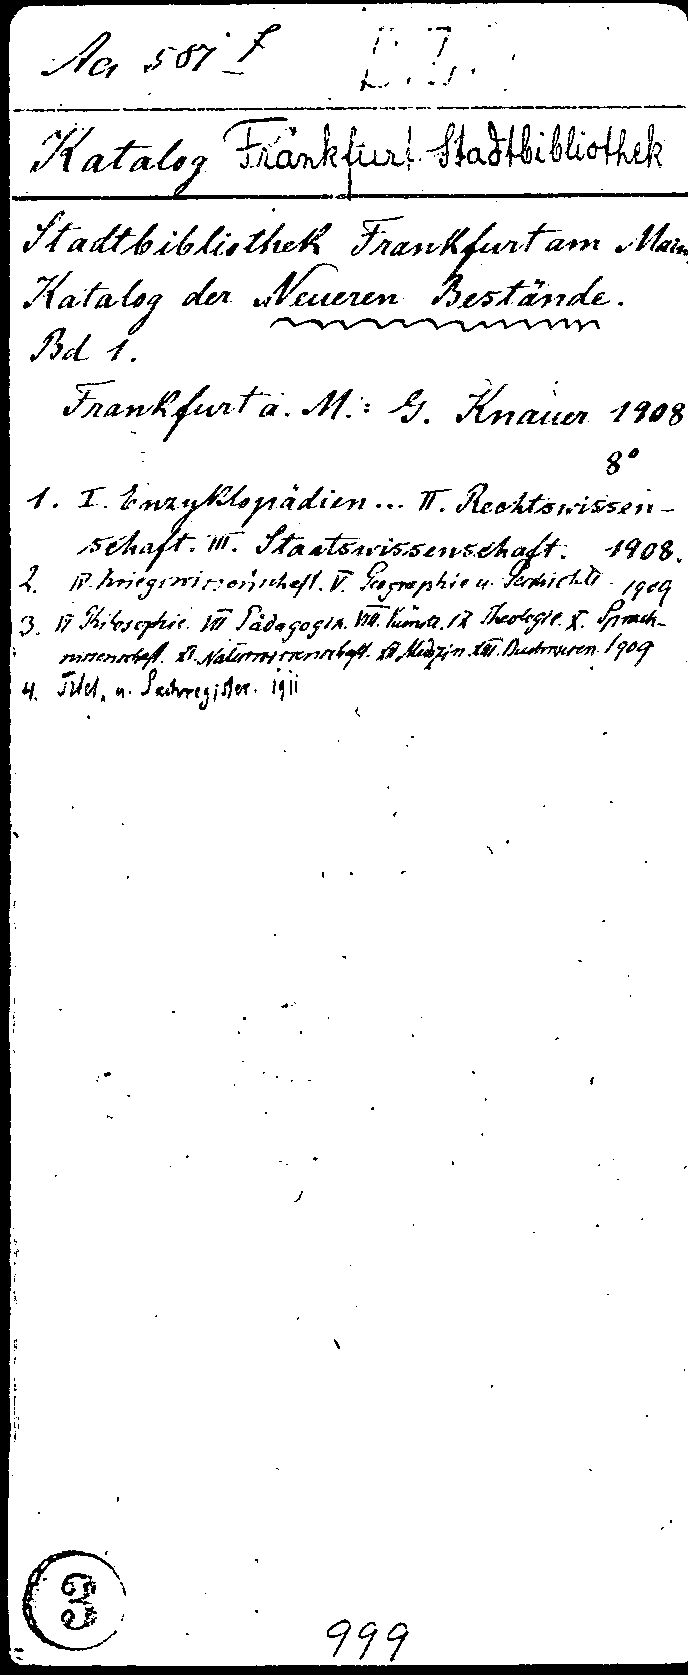 Aa 587 f
Katalog Frankfurt Stadtbibliothek
Stadtbibliothek Frankfurt am Main
Katalog der Neueren Bestände.
Bd 1.
Frankfurt a. M.: G. Knauer 1908
8°
1. I. Enzyklopädien... II. Rechtswissen-
schaft. III. Staatswissenschaft. 1908.
2. IV. Kriegswissenschaft. V. Geographie u. Geschichte 1909
3. VI Philosophie. VII Pädagogik. VIII. Künste. IX Theologie. X. Sprach-
wissenschaft. XI. Naturwissenschaft. XII Medizin. XIII Buchwesen. 1909
4. Titel. u. Sachregister. 1911
63
999